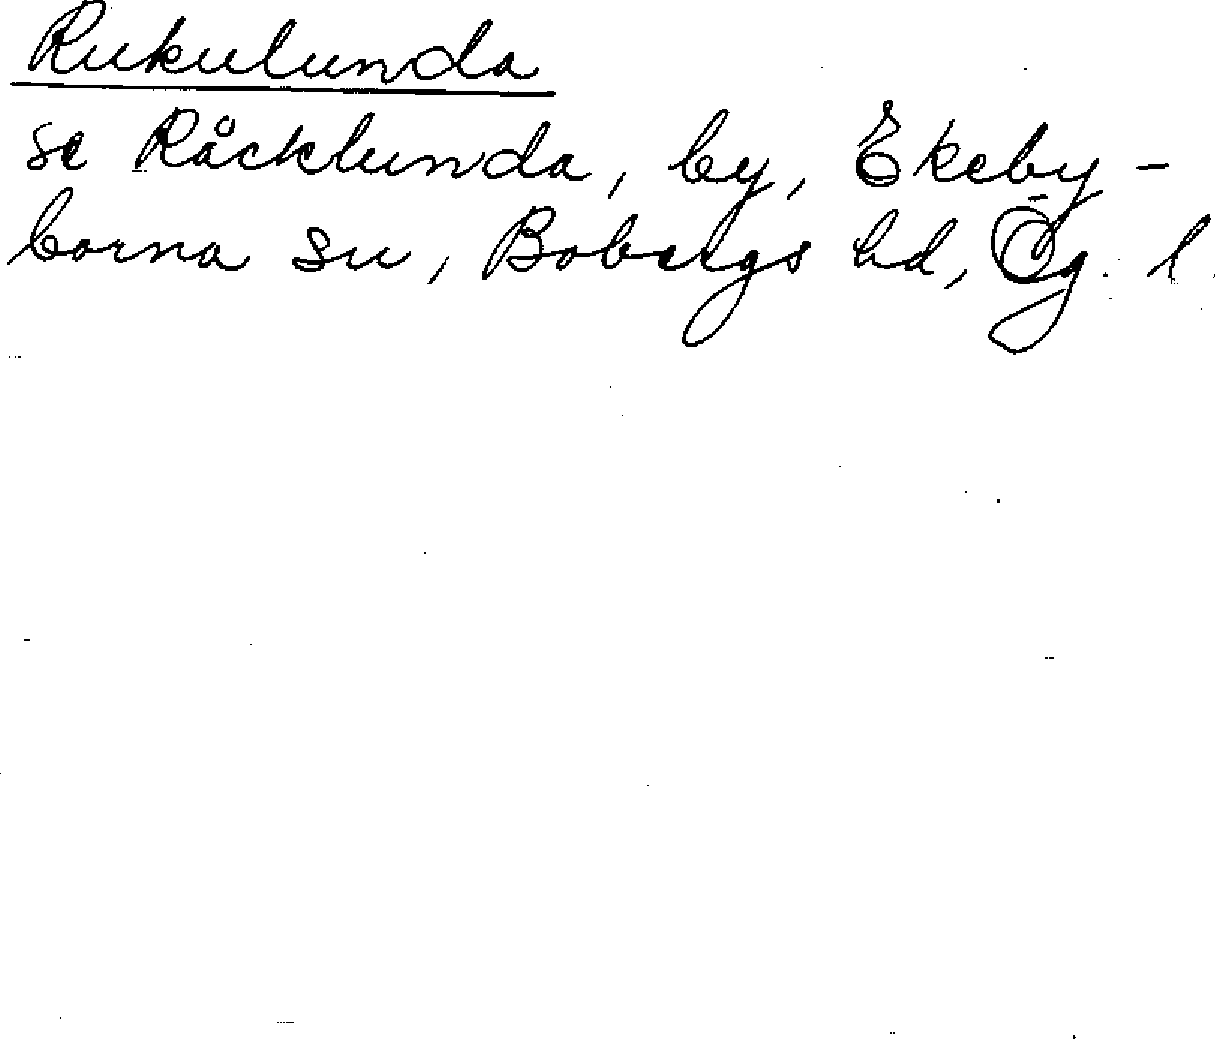 Rukulunda
se Råcklunda, by, Ekeby-
borna sn, Bobergs hd, Ög. l.